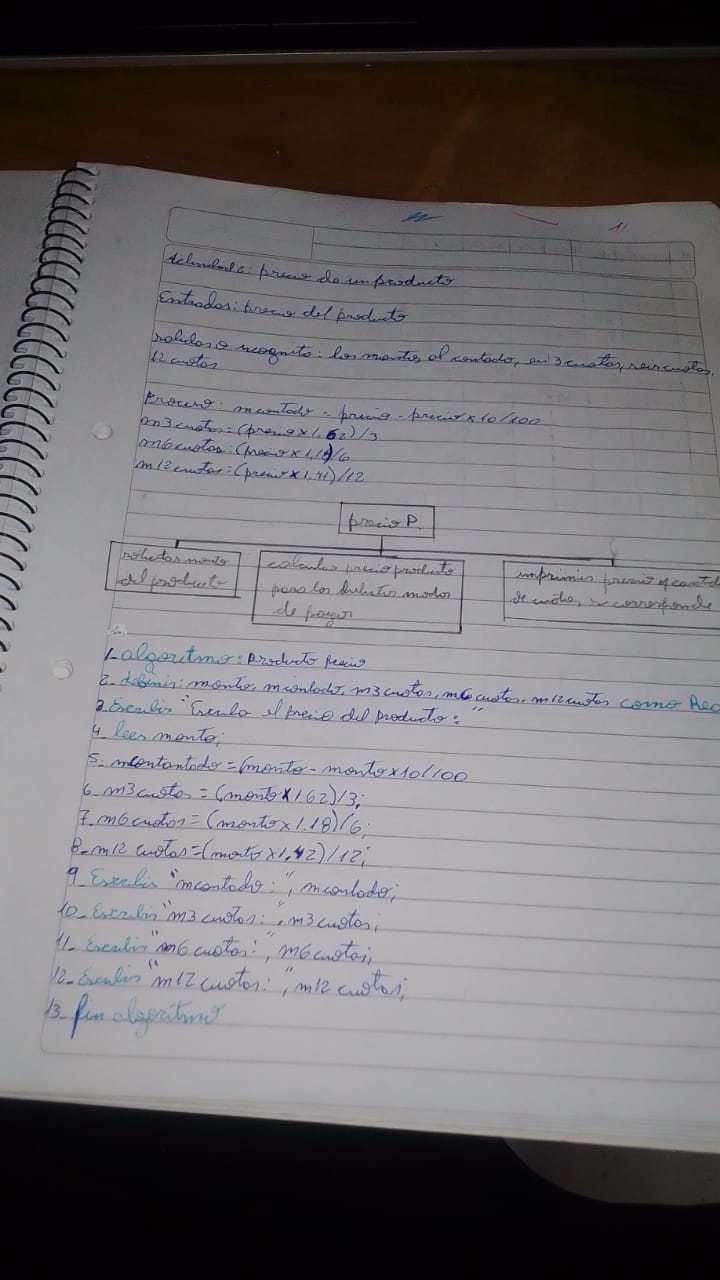 Actividad 2: precio de un producto
Entradas: precio del producto
salidas o incognita: los montos al contado, en 3 cuotas, seis cuotas,
12 cuotas
Proceso: mcontado = precio - precio x 10/100
m3cuotas = (precio x 1,62)/3
m6cuotas: (precio x 1,18)/6
m12cuotas: (precio x 1,41)/12
precio P.
solicitar monto
del producto
calcular precio producto
para los distintos modos
de pagar
imprimir precio y cantid
de cuotas, corresponde
1. algoritmo: producto precio
2. definir: monto, mcontado, m3cuotas, m6cuotas, m12cuotos como Rea
3. Escribir "Escriba el precio del producto: "
4. leer monto;
5. mcontantado = (monto - monto x 10/100
6. m3cuotas = (monto x 1.62)/3;
7. m6cuotas = (monto x 1.18)/6;
8. m12 cuotas = (monto x 1,42)/12;
9. Escribir "mcontado: ", mcontado;
10. Escribir "m3 cuotas: ", m3 cuotas;
11. Escribir "m6 cuotas: ", m6 cuotas;
12. Escribir "m12 cuotas: ", m12 cuotas;
13. fin algoritmo